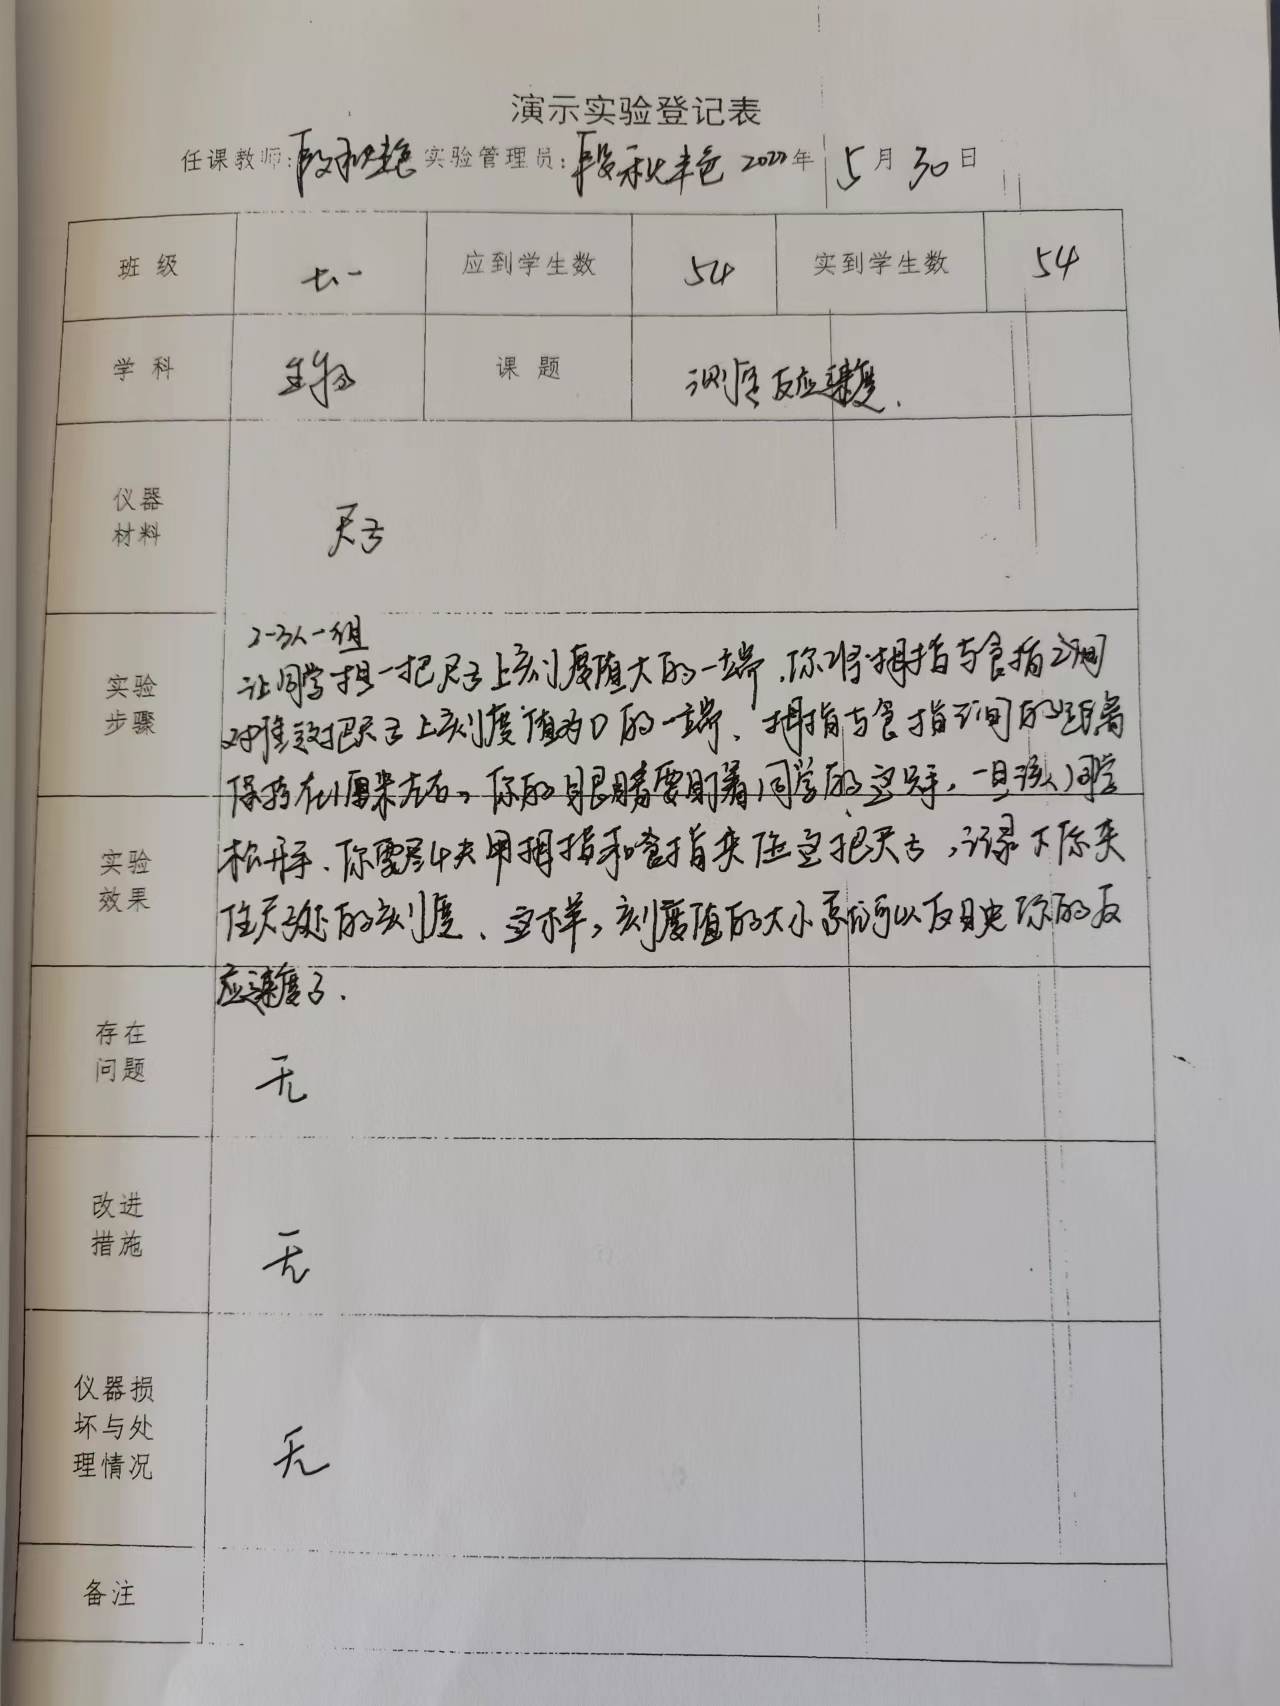 演示实验登记表
任课教师:段秋艳 实验管理员:段秋艳 2022年 5月30日
班级 七.一 应到学生数 54 实到学生数 54
学科 生物 课题 测定反应速度.
仪器
材料
尺子
2-3人一组
实验
步骤
让同学捏一把尺子上刻度值大的一端,你将拇指与食指之间
对准这把尺子上刻度值为0的一端、拇指与食指之间的距离
保持在1厘米左右,你的眼睛要盯着同学的这只手,一旦该同学
实验
效果
松开手、你需尽快用拇指和食指夹住这把尺子,记录下你夹
住尺子处的刻度、这样,刻度值的大小就可以反映你的反
应速度了.
存在
问题
无
改进
措施
无
仪器损
坏与处
理情况
无
备注